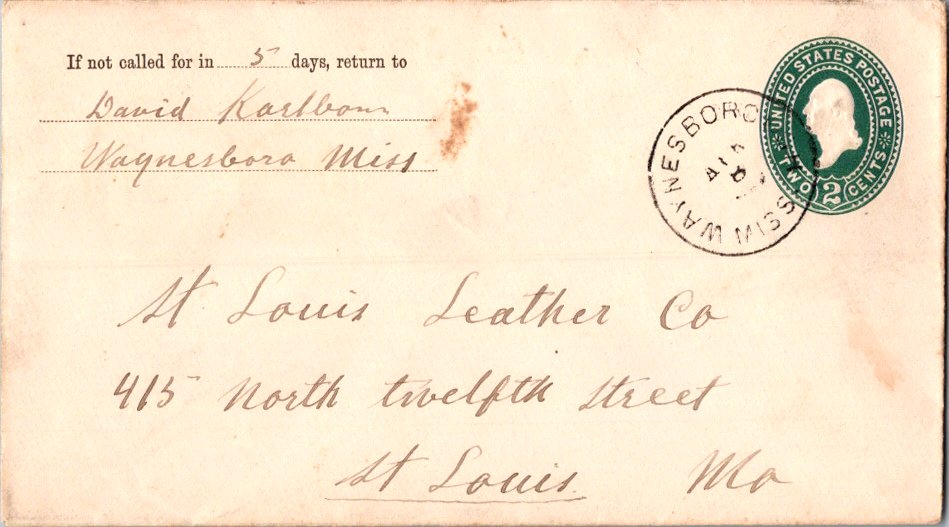 If not called for in 5 days, return to
David
Waynesboro Miss
UNITED STATES POSTAGE
TWO 2 CENTS
WAYNESBORO MISS.
St Louis Leather Co
415 North twelfth Street
St Louis Mo